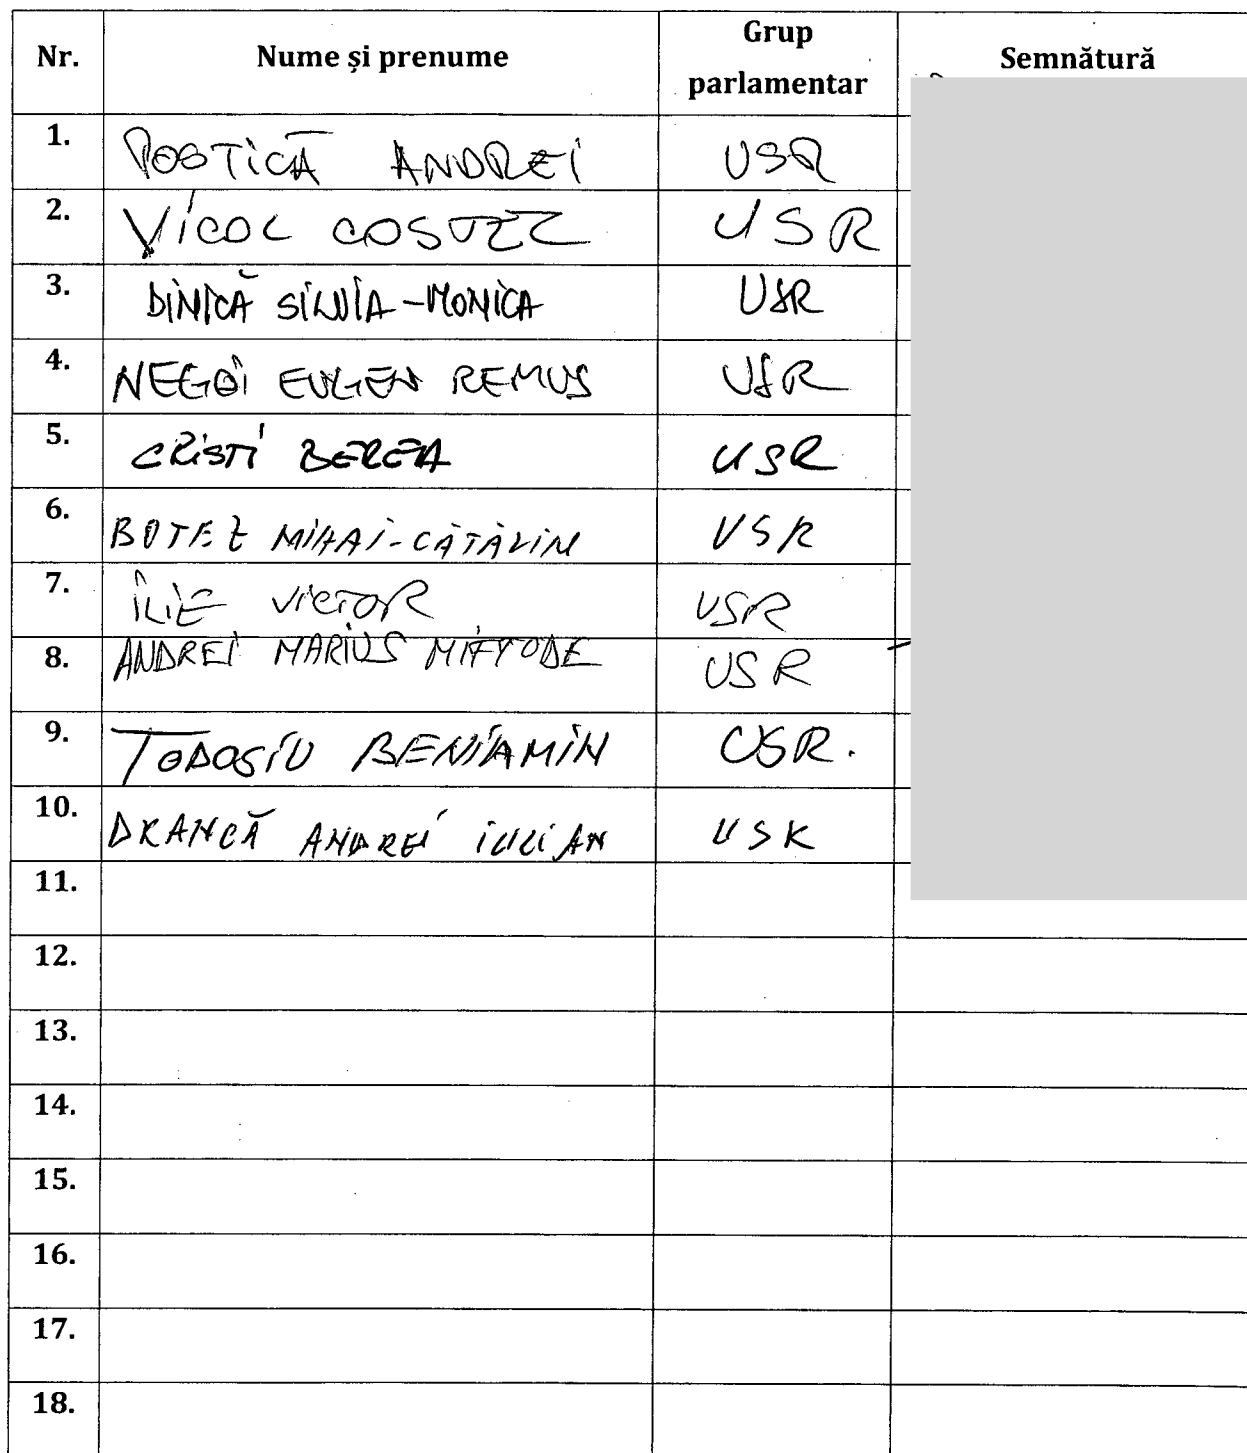 Nr. Nume și prenume Grup parlamentar Semnătură
1. POSTICĂ ANDREI USR
2. VICOL COSTEL USR
3. DINICĂ SILVIA-MONICA USR
4. NEGOI EUGEN REMUS USR
5. CRISTI BEREA USR
6. BOTEZ MIHAI-CĂTĂLIN USR
7. ILIE VICTOR USR
8. ANDREI MARIUS MIFTODE USR
9. TODOSIU BENIAMIN USR.
10. DRANCĂ ANDREI IULIAN USR
11.
12.
13.
14.
15.
16.
17.
18.